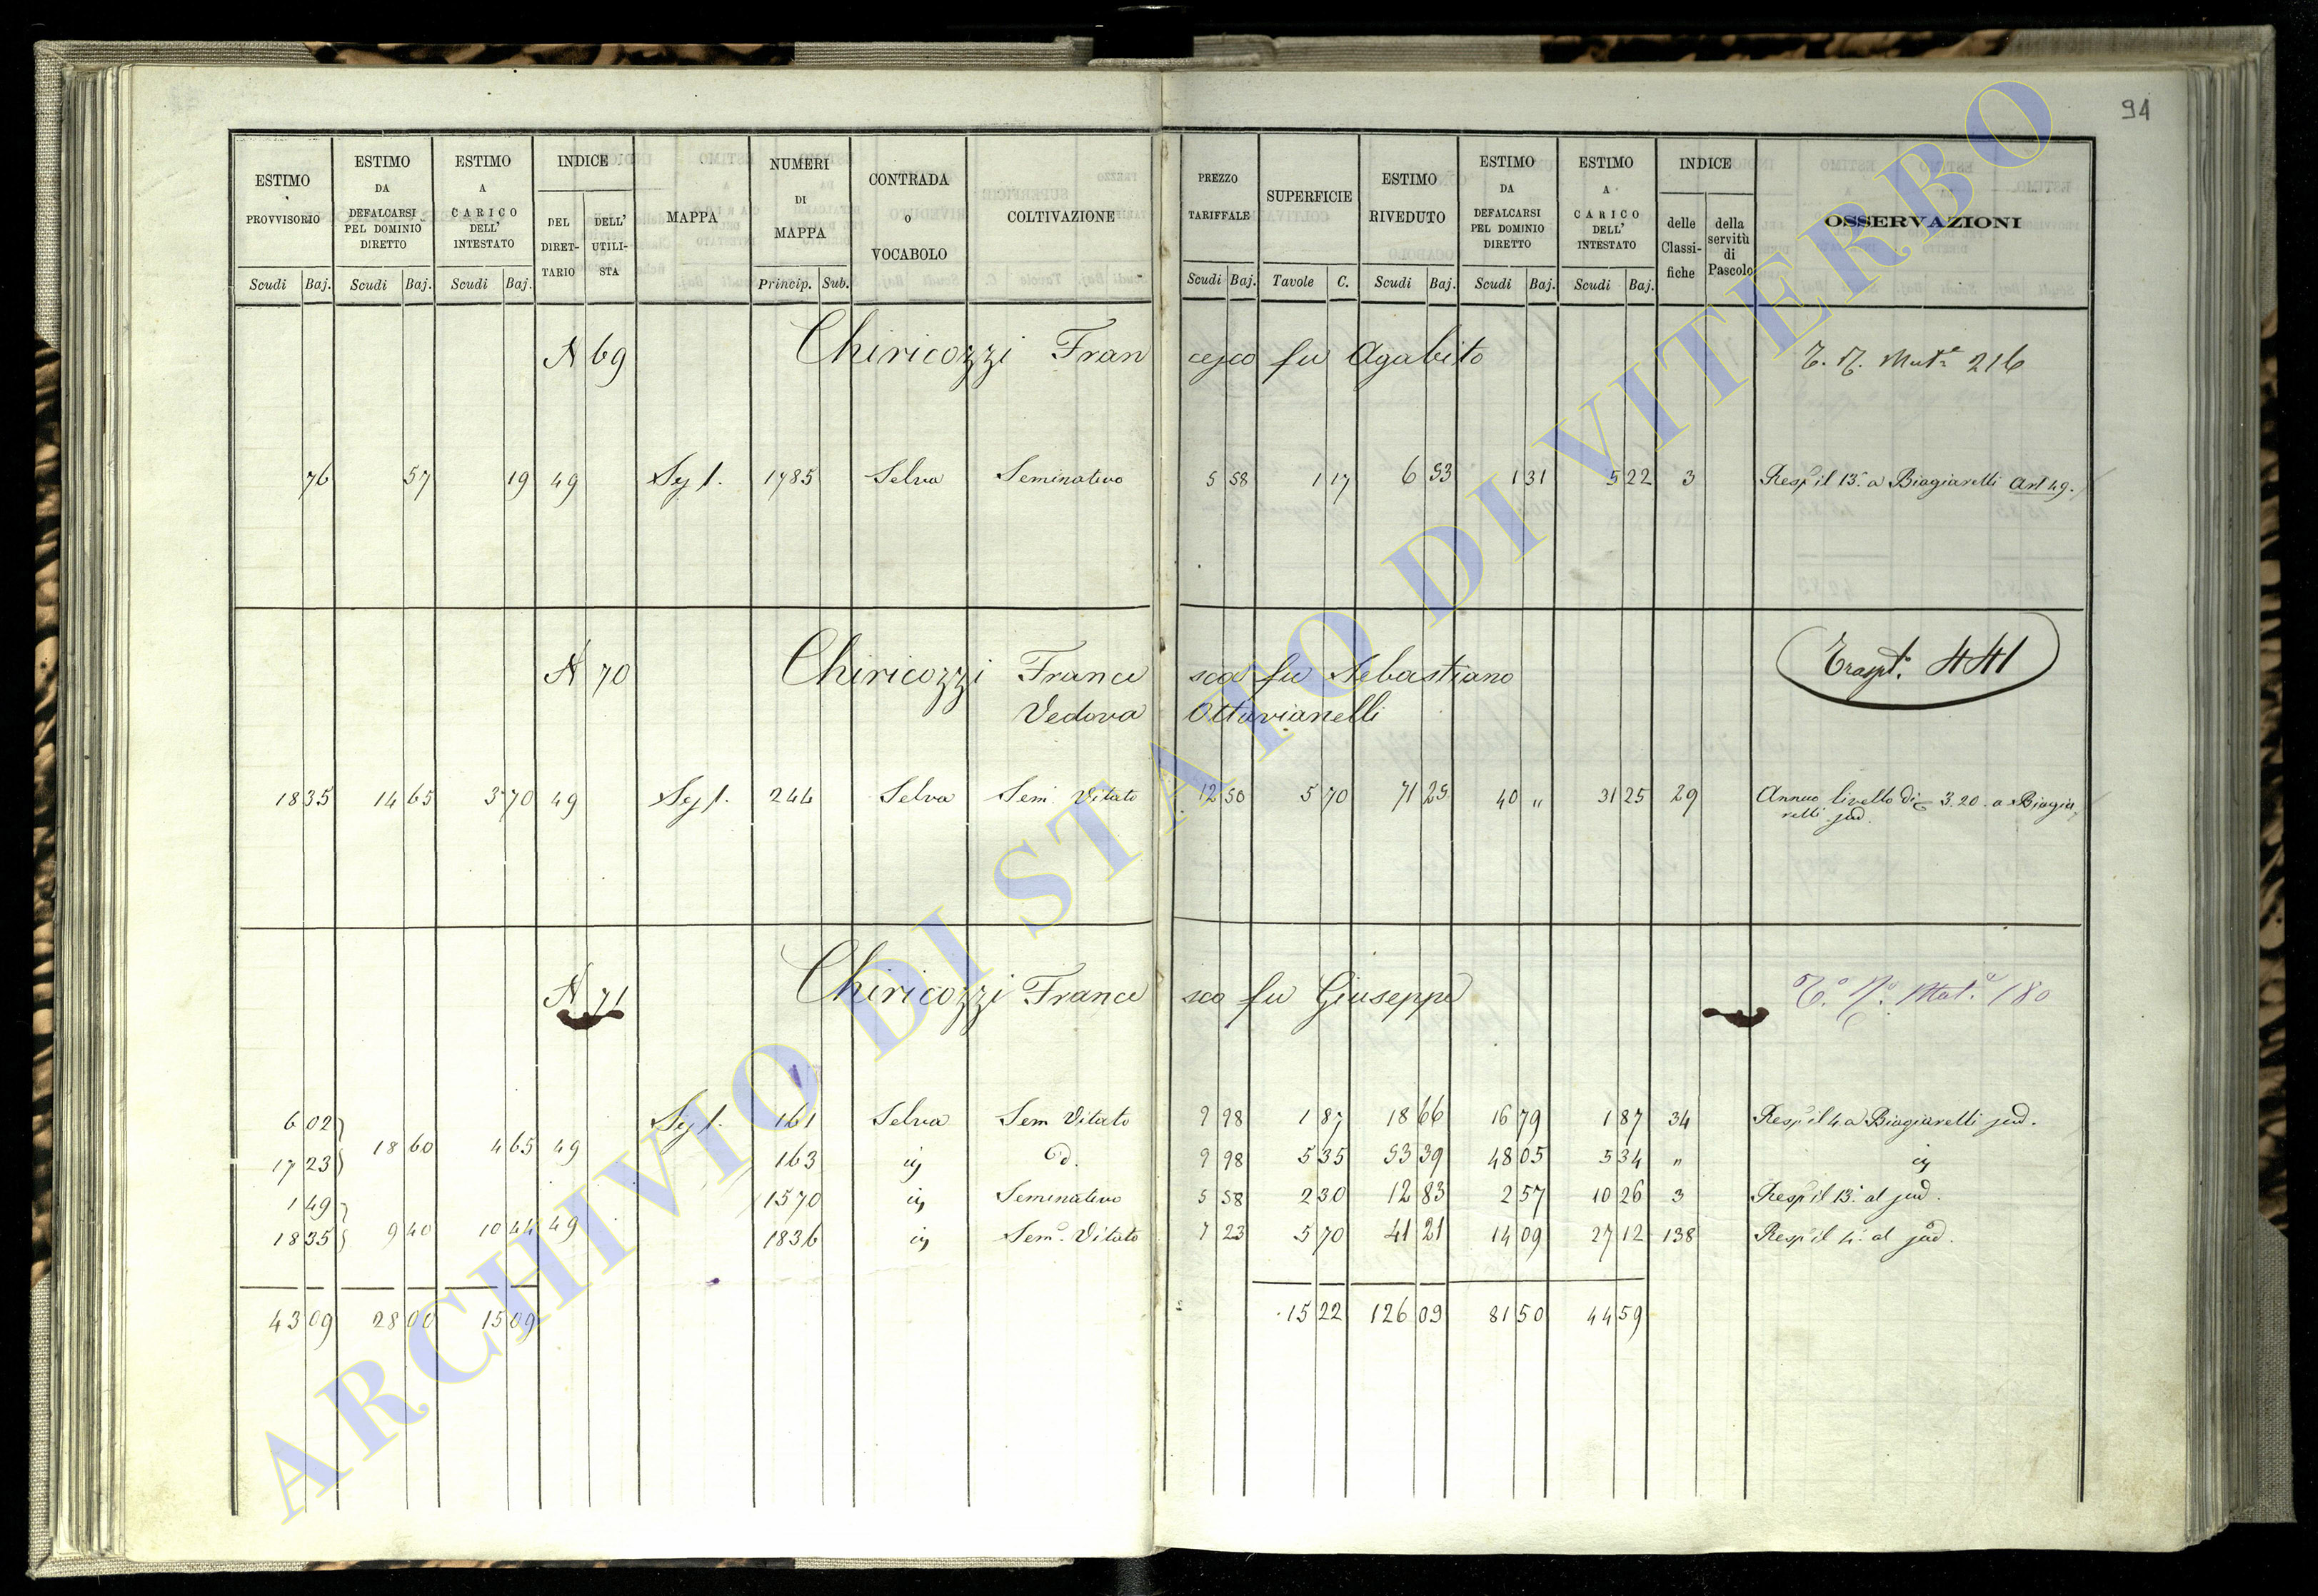 94
ESTIMO PROVVISORIO Scudi Baj. ESTIMO DA DEFALCARSI PEL DOMINIO DIRETTO Scudi Baj. ESTIMO A CARICO DELL' INTESTATO Scudi Baj. INDICE DEL DIRET-TARIO DELL' UTILI-STA MAPPA NUMERI DI MAPPA Princip. Sub. CONTRADA o VOCABOLO COLTIVAZIONE PREZZO TARIFFALE Scudi Baj. SUPERFICIE Tavole C. ESTIMO RIVEDUTO Scudi Baj. ESTIMO DA DEFALCARSI PEL DOMINIO DIRETTO Scudi Baj. ESTIMO A CARICO DELL' INTESTATO Scudi Baj. INDICE delle Classi-fiche della servitù di Pascolo OSSERVAZIONI
N 69 Chiricozzi Francesco fu Agabito T. N. Mutª 216
76 57 19 49 Sez 1. 1785 Selva Seminativo 5 58 1 17 6 53 1 31 5 22 3 Resp il 13º a Biagiarelli Art 49.
N 70 Chiricozzi Francesca fu Sebastiano Traspt. 441
Vedova Ottavianelli
18 35 14 65 3 70 49 Sez 1. 244 Selva Sem. Vitato 12 50 5 70 71 25 40 " 31 25 29 Annuo livello di 3.20 a Biagia
relli sud.
N 71 Chiricozzi Francesco fu Giuseppe Tº. Nº. Mat.ª 180
6 02 18 60 4 65 49 Sez 1. 161 Selva Sem Vitato 9 98 1 87 18 66 16 79 1 87 34 Resp il 4 a Biagiarelli sud.
17 23 163 id Id. 9 98 5 35 53 39 48 05 5 34 " id
1 49 9 40 10 44 49 1570 id Seminativo 5 58 2 30 12 83 2 57 10 26 3 Resp il 13º al sud.
18 35 1836 id Sem. Vitato 7 23 5 70 41 21 14 09 27 12 138 Resp il 4º al sud.
43 09 28 00 15 09 15 22 126 09 81 50 44 59
ARCHIVIO DI STATO DI VITERBO